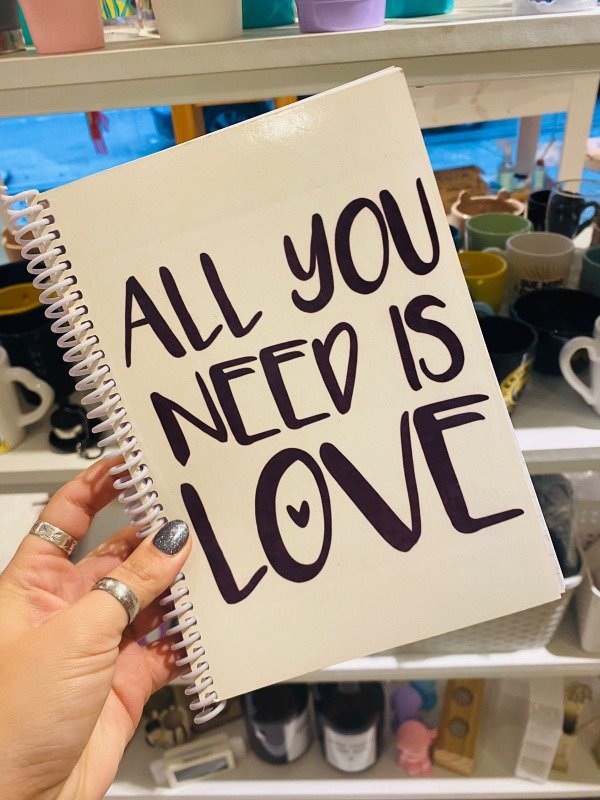 ALL YOU
NEED IS
LOVE